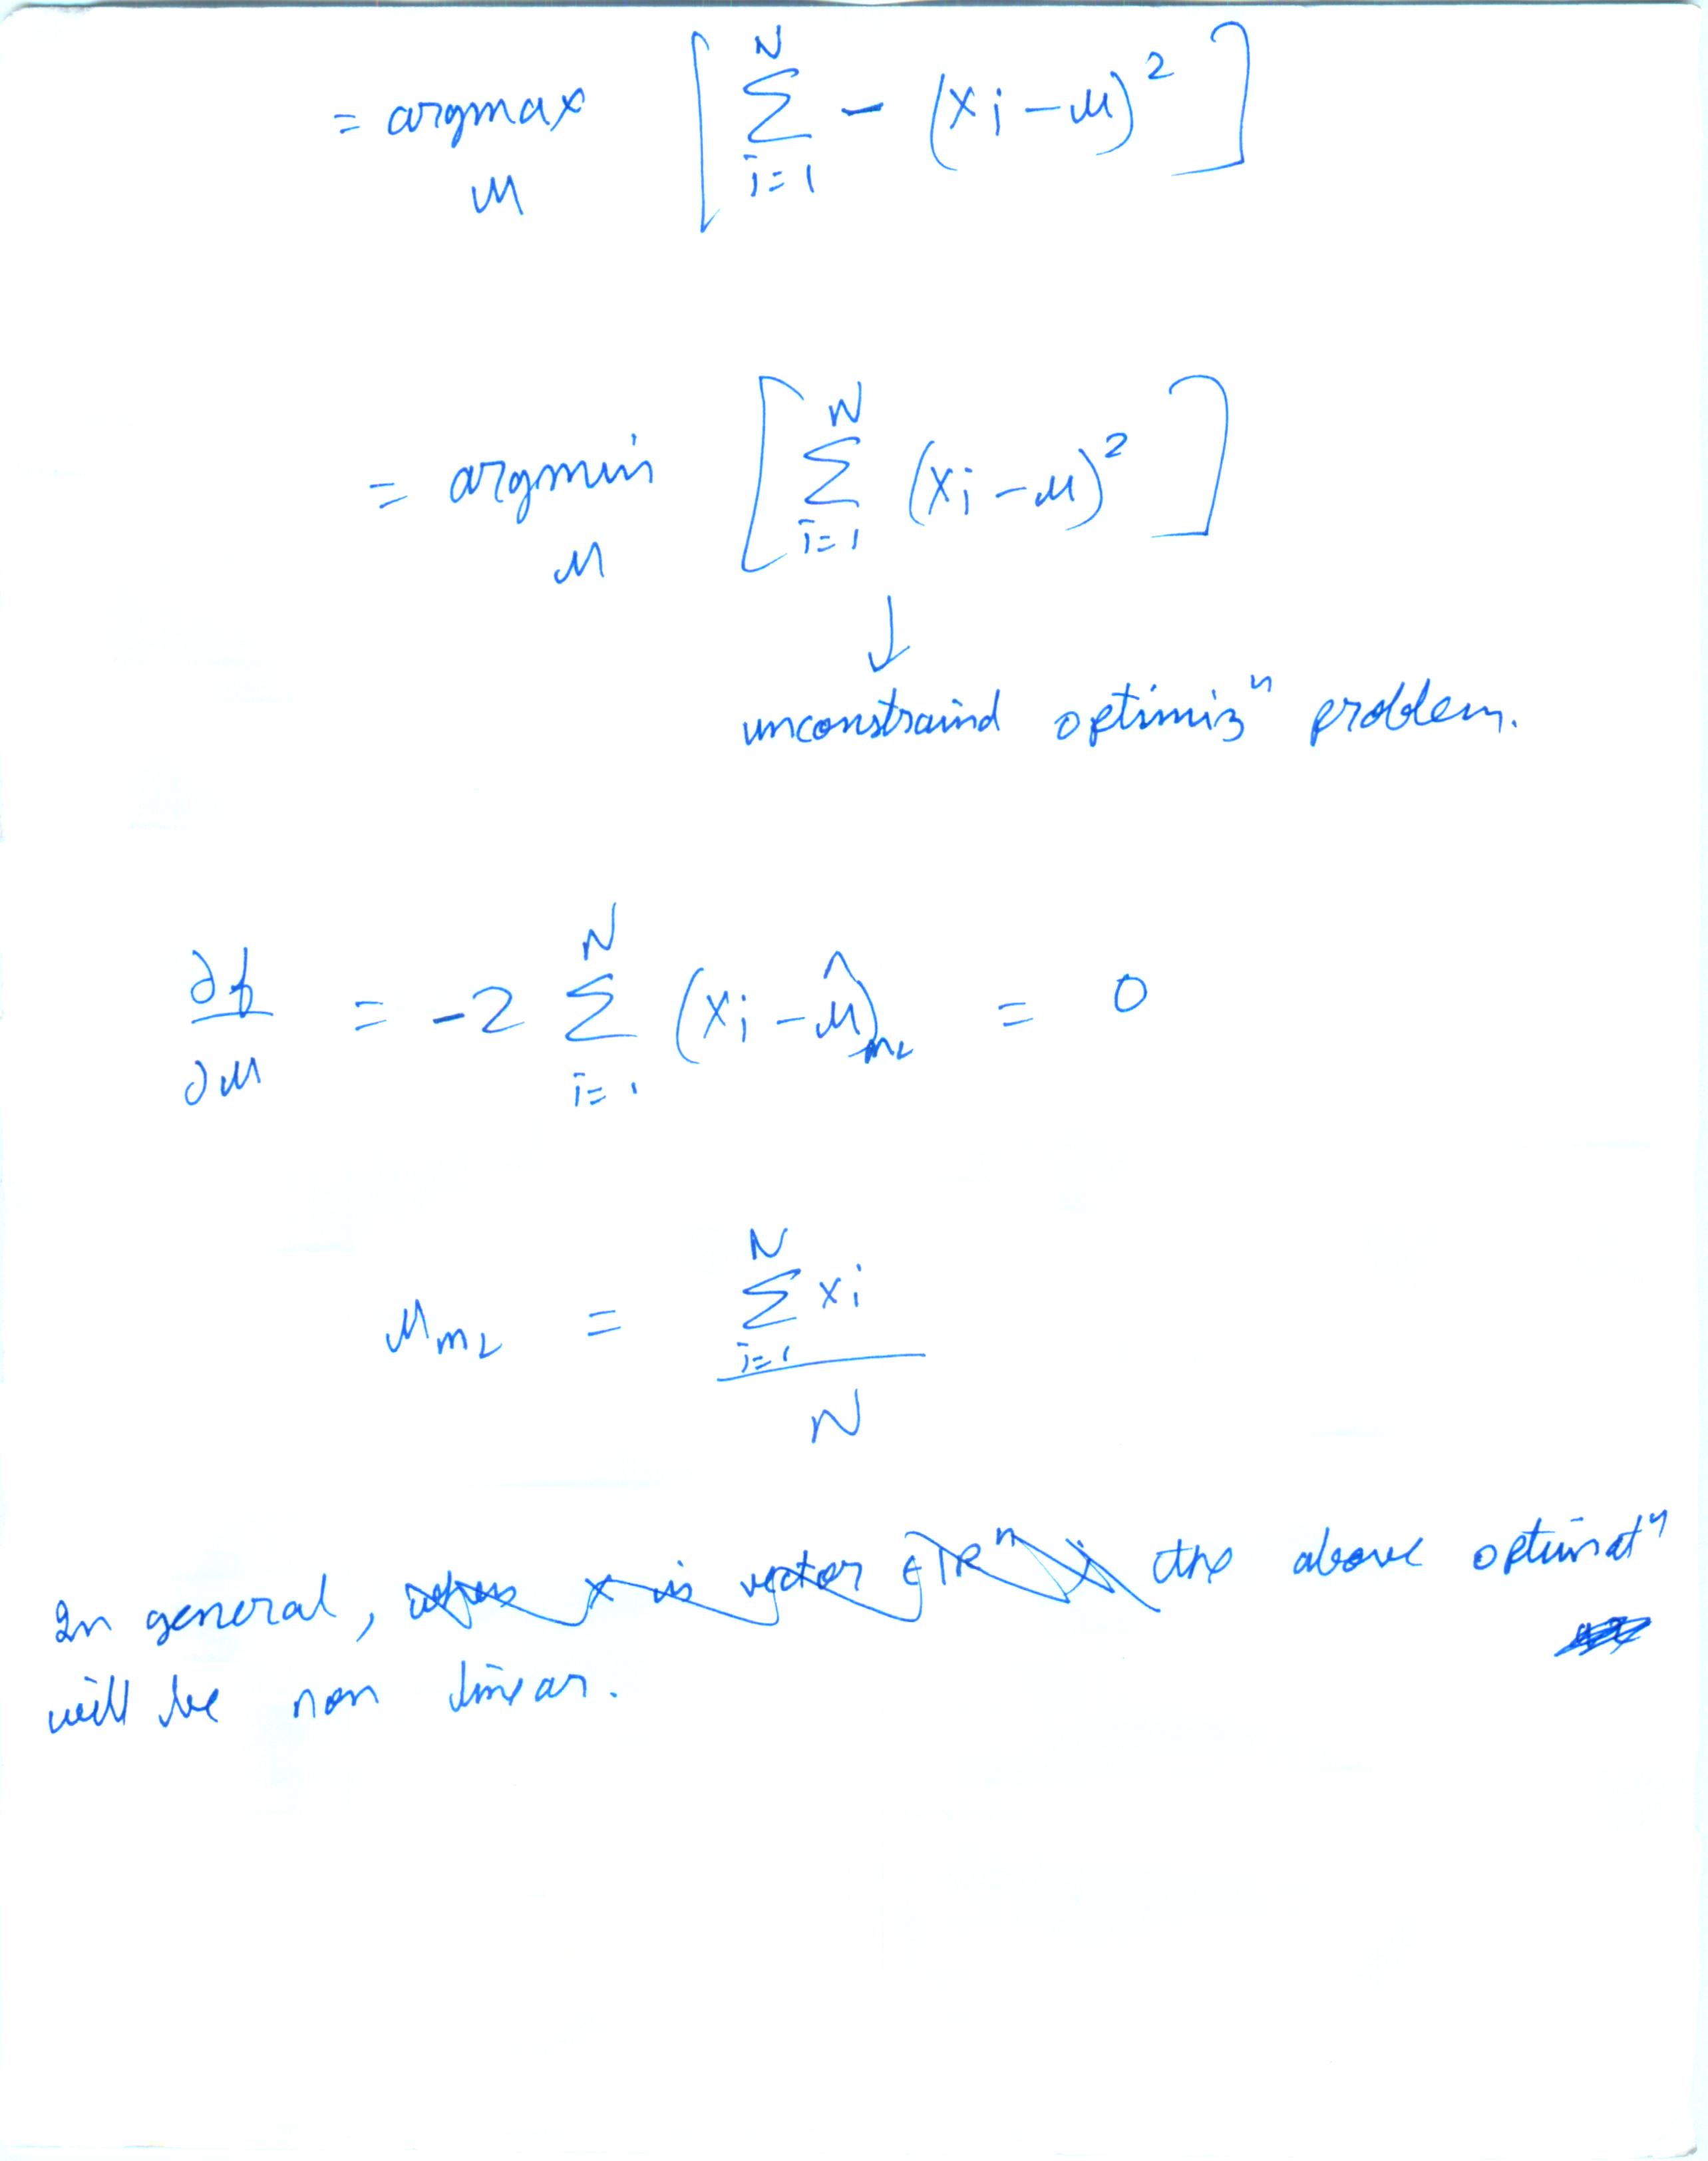 = argmax_μ [ Σ_{i=1}^{N} - (x_i - μ)^2 ]
= argmin_μ [ Σ_{i=1}^{N} (x_i - μ)^2 ]
↓
unconstraind optimizⁿ problem.
∂f/∂μ = -2 Σ_{i=1}^{N} (x_i - μ̂)_{ML} = 0
μ_{ML} = Σ_{i=1}^{N} x_i / N
In general, when x is vector ∈ ℝⁿ, the above optimatⁿ
will be non linear.